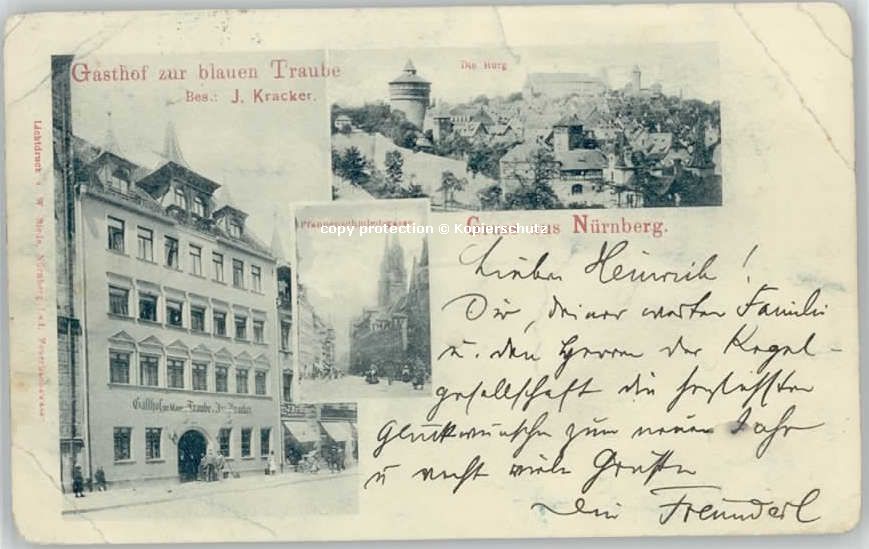 Gasthof zur blauen Traube
Bes.: J. Kracker.
Die Burg
Pfannenschmiedsgasse
Gruss aus Nürnberg.
copy protection © Kopierschutz
Gasthof zur blauen Traube, J. Kracker
Lichtdruck v. W. Nürnberg
Lieber Heinrich!
Dir, deiner werten Familie
u. den Herren der Kegel-
gesellschaft die herzlichsten
Glückwünsche zum neuen Jahr
u recht viele Grüße
Dein Freunderl